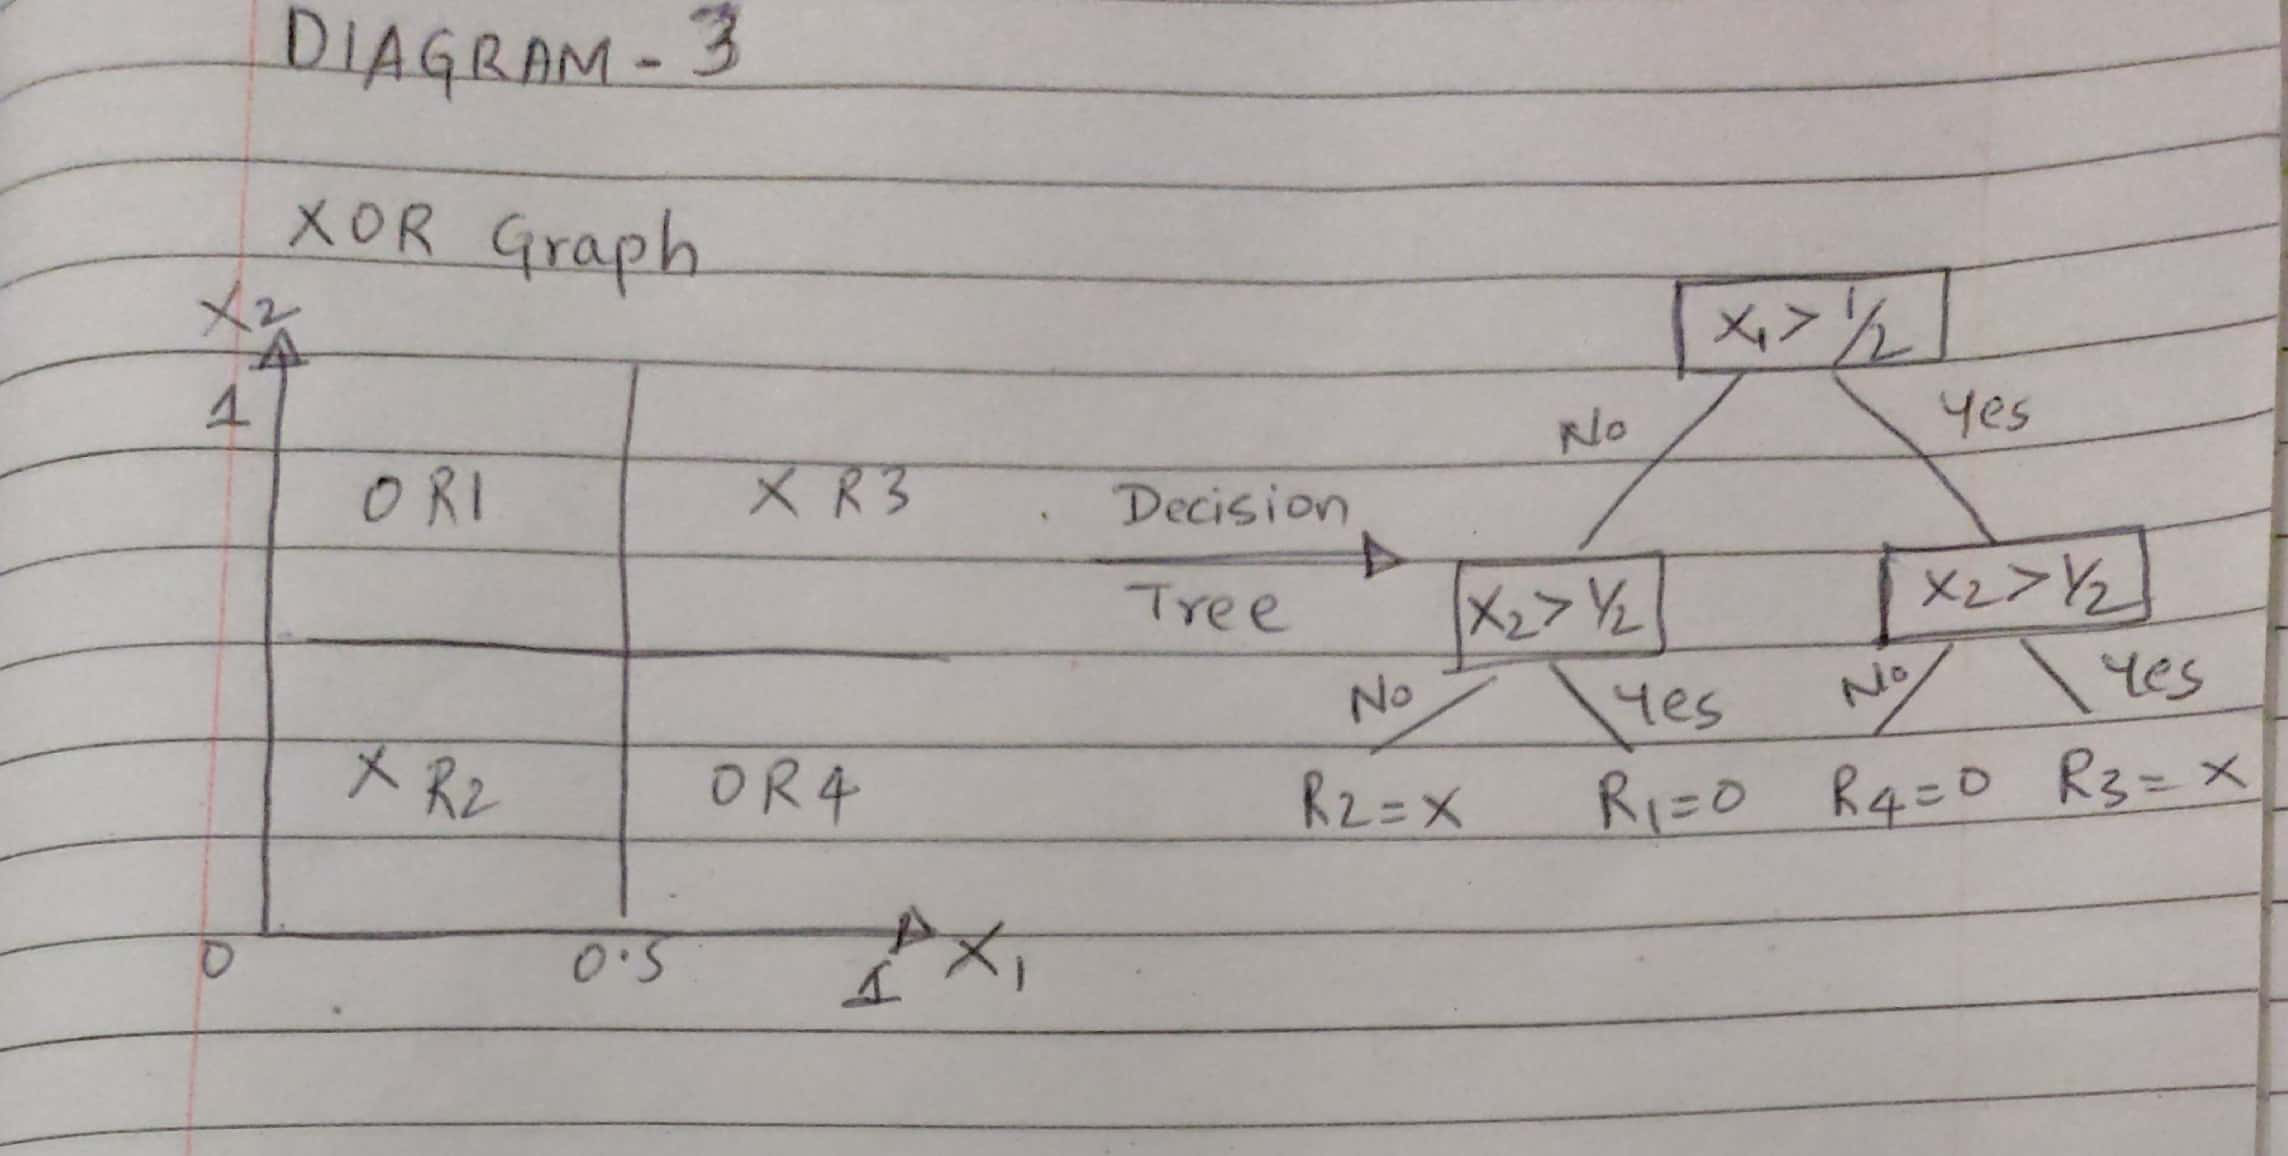 DIAGRAM - 3
XOR Graph
X2
1
O R1
X R3
X R2
O R4
0
0.5
1
X1
Decision
Tree
X1 > 1/2
No
Yes
X2 > 1/2
X2 > 1/2
No
Yes
No
Yes
R2 = X
R1 = O
R4 = O
R3 = X